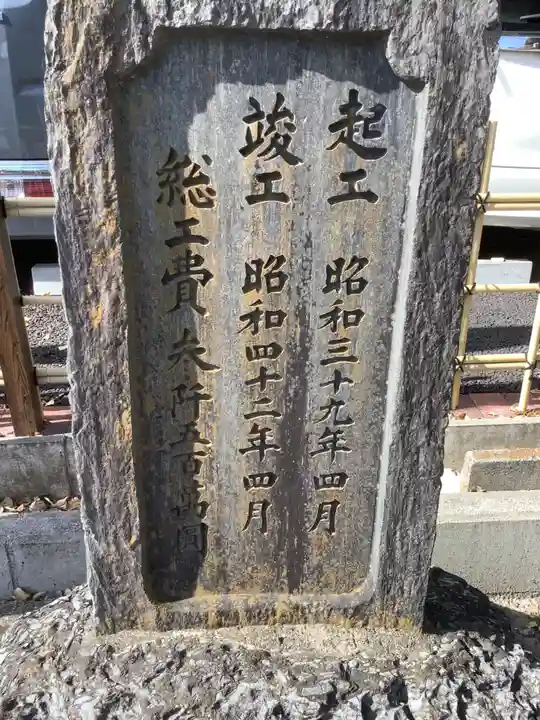 起工 昭和三十九年四月
竣工 昭和四十二年四月
総工費参阡五百萬圓